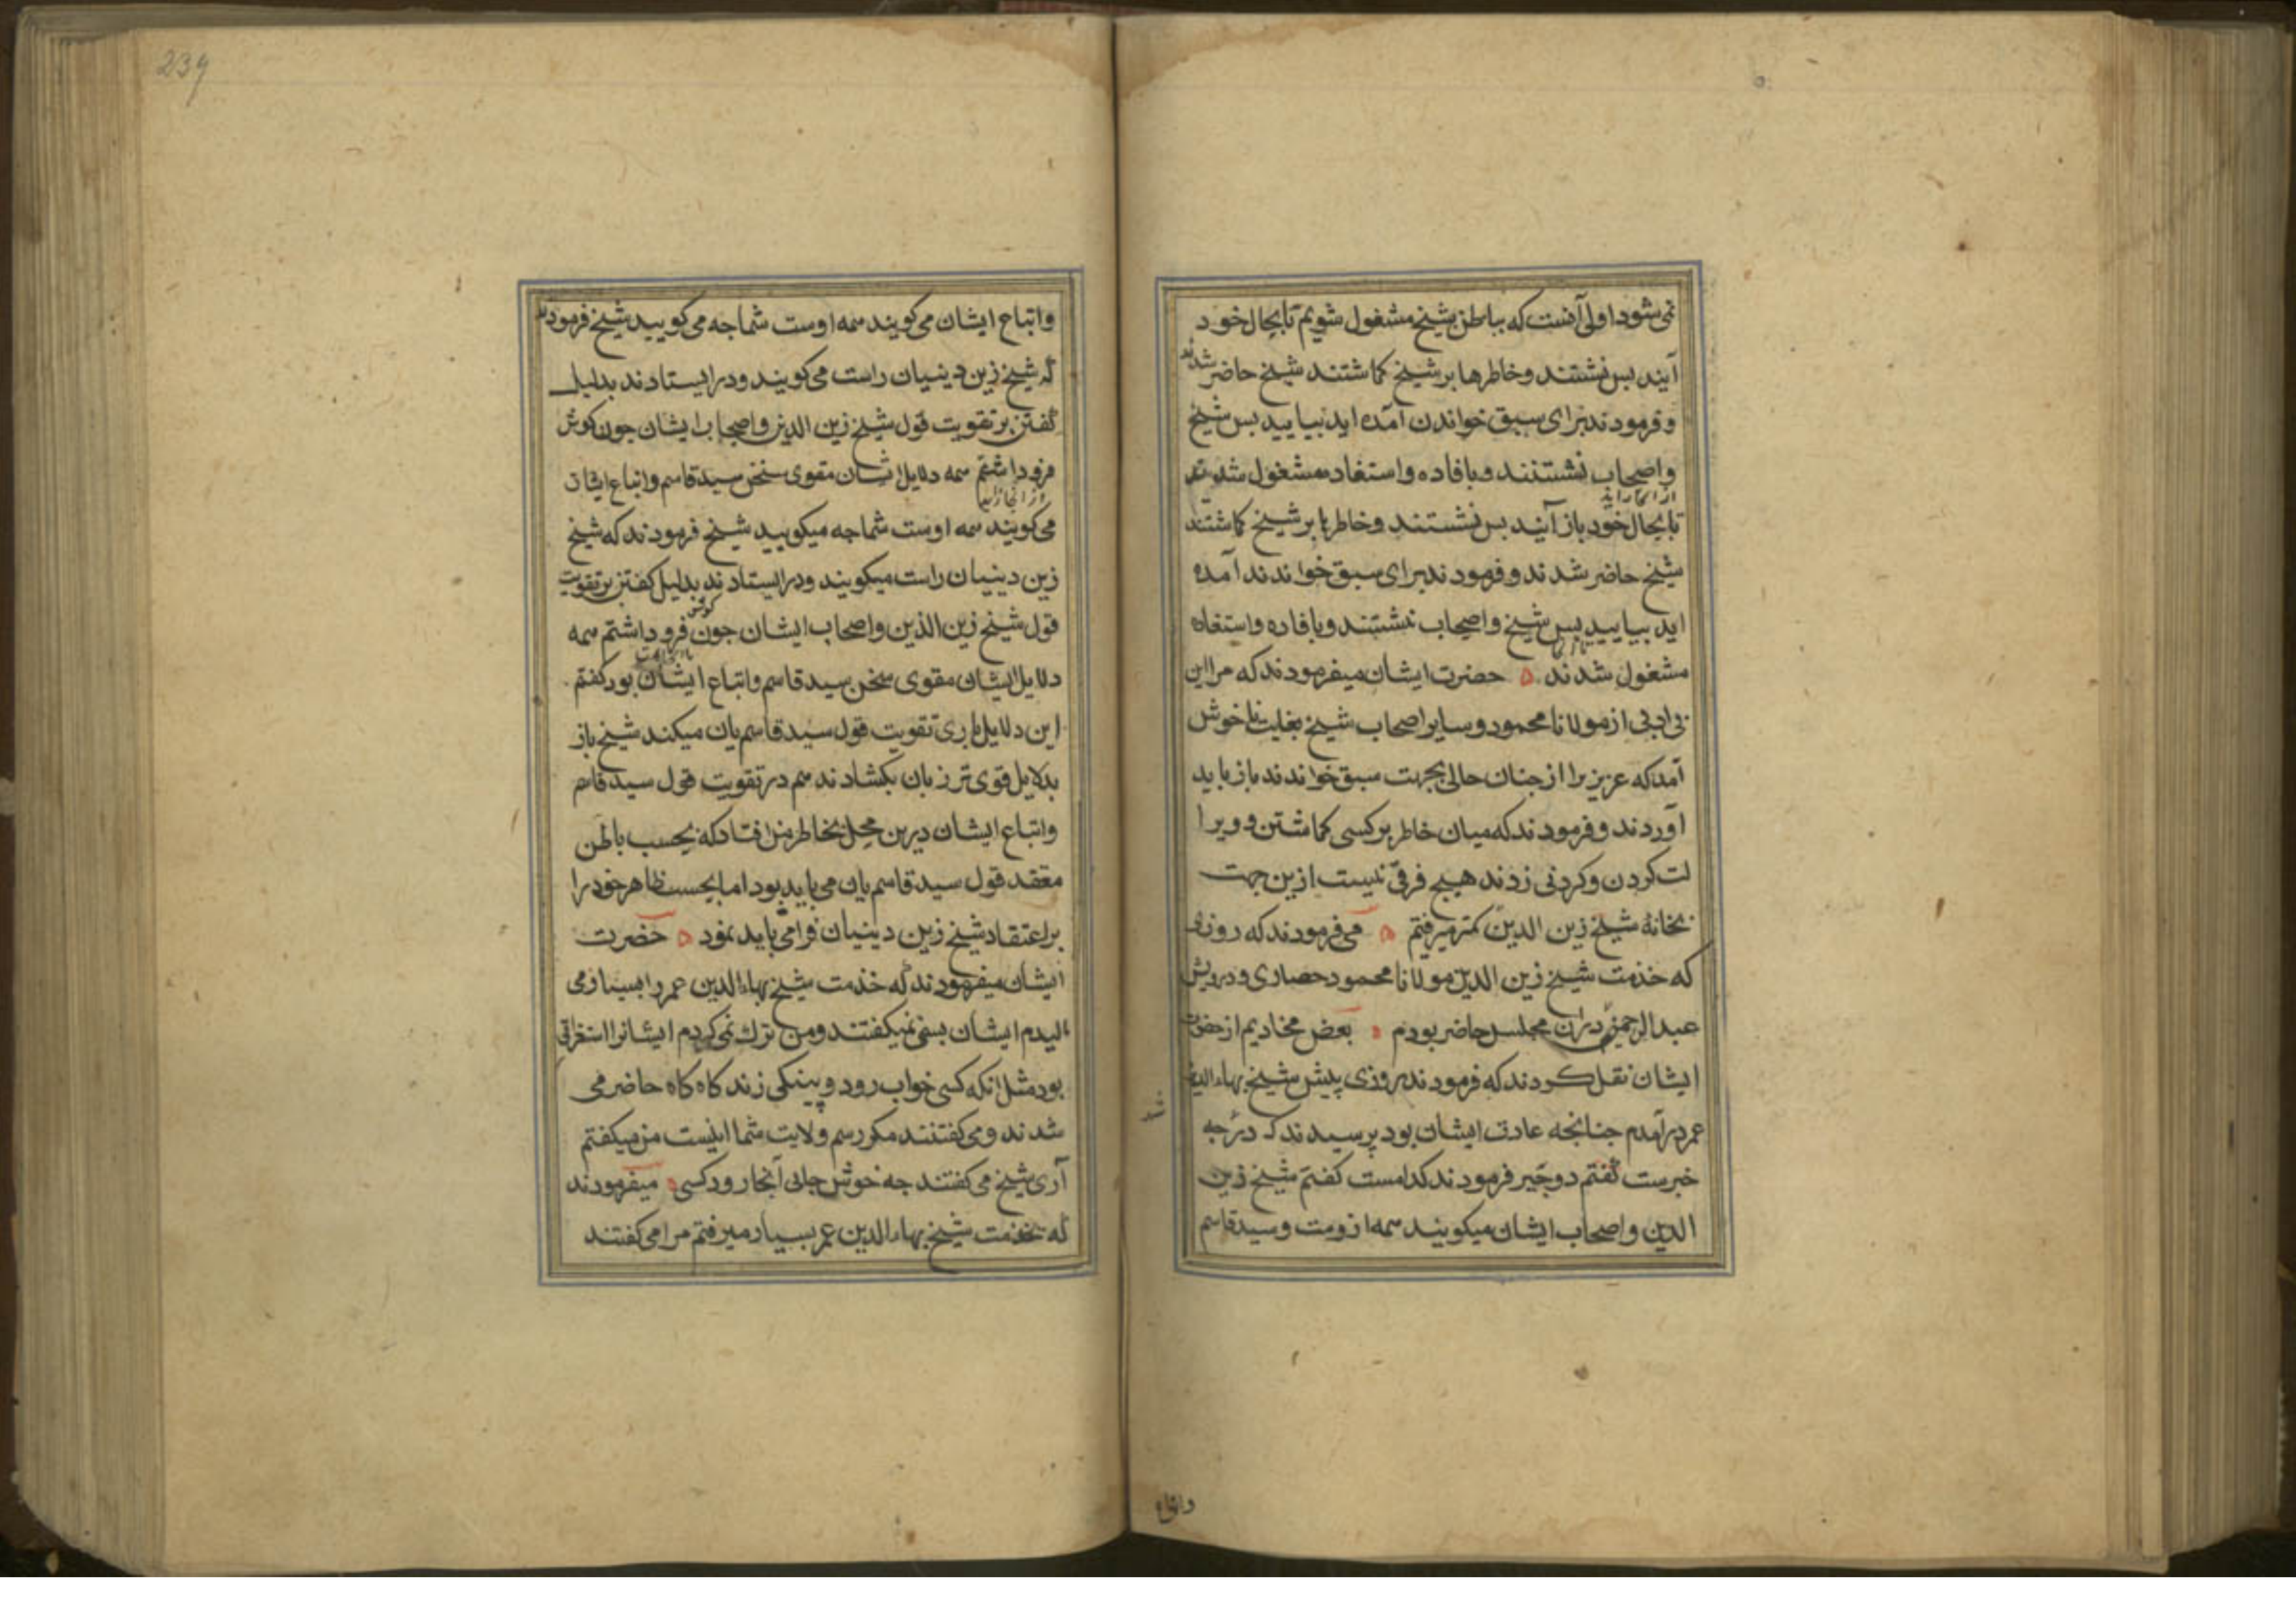 نمی شود اولی آنست که بباطن شیخ مشغول شویم تا بحال خود
آیند بس نشستند و خاطرها بر شیخ کماشتند شیخ حاضر شدند
و فرمودند برای سبق خواندن آمده اید بیایید بس شیخ
و اصحاب نشستند و بافاده و استفاده مشغول شدند
تا بحال خود باز آیند بس نشستند و خاطرها بر شیخ کماشتند
شیخ حاضر شدند و فرمودند برای سبق خواندند آمده
اید بیایید بس شیخ و اصحاب نشستند و بافاده و استفاه
مشغول شدند حضرت ایشان میفرمودند که مرا این
بی ادبی از مولانا محمود و سایر اصحاب شیخ بغایت ناخوش
آمد که عزیز برا از جنان حالی بجهت سبق خواندند باز باید
آوردند و فرمودند که میان خاطر بر کسی کماشتن و ویرا
لت کردن و کردنی زدند هیچ فرقی نیست ازین جهت
بخانۀ شیخ زین الدین کمتر میرفتم می فرمودند که روزی
که خذمت شیخ زین الدین مولانا محمود حصاری و درویش
عبد الرحیمی دران مجلس حاضر بودم بعض مخادیم از حضرت
ایشان نقل کردند که فرمودند روزی پیش شیخ بهاء الدین
عمر درآمدم جنانجه عادت ایشان بود پرسیدند که در شهر جه
خبرست گفتم دو چیر فرمودند کدامست کفتم شیخ زین
الدین و اصحاب ایشان میکویند همه ازوست و سید قاسم
و اتباع ایشان می کویند همه اوست شما جه می کویید شیخ فرمودند
که شیخ زین دینیان راست می کویند و در ایستادند بدلیل
گفتن بر تقویت قول شیخ زین الدین و اصحاب ایشان جون کوش
فرود اشتم همه دلایل اشان مقوی سخن سید قاسم و اتباع ایشان
می کویند همه اوست شما جه میکویید شیخ فرمودند که شیخ
زین دینییان راست میکویند و در ایستادند بدلیل کفتن بر تقویت
قول شیخ زین الذین و اصحاب ایشان جون کوش فرو داشتم همه
دلایل ایشان مقوی سخن سید قاسم و اتباع ایشان بود کفتم
این دلایل باری تقویت قول سید قاسم یان میکند شیخ باز
بدلایل قوی تر زبان بکشادند هم در تقویت قول سید قاسم
و اتباع ایشان درین محل بخاطر من افتاد که بحسب باطن
معقد قول سید قاسم یان می باید بود اما بحسب ظاهر خود را
بر اعتقاد شیخ زین دینیان فرا می باید نمود حضرت
ایشان میفرمودند که خذمت شیخ بهاء الدین عمر را بسیار می
مالیدم ایشان بس نمیکفتند و من ترك نمی کردم ایشانرا استغراقی
بود مثل انکه کسی خواب رود و پینکی زند کاه کاه حاضر می
شدند و می کفتنند مکر رسم ولایت شما اینست من میکفتم
آری شیخ می کفتند جه خوش جایی آنجا رود کسی میفرمودند
که بخذمت شیخ بهاء الدین عمر بسیار میرفتم مرا می کفتند
239